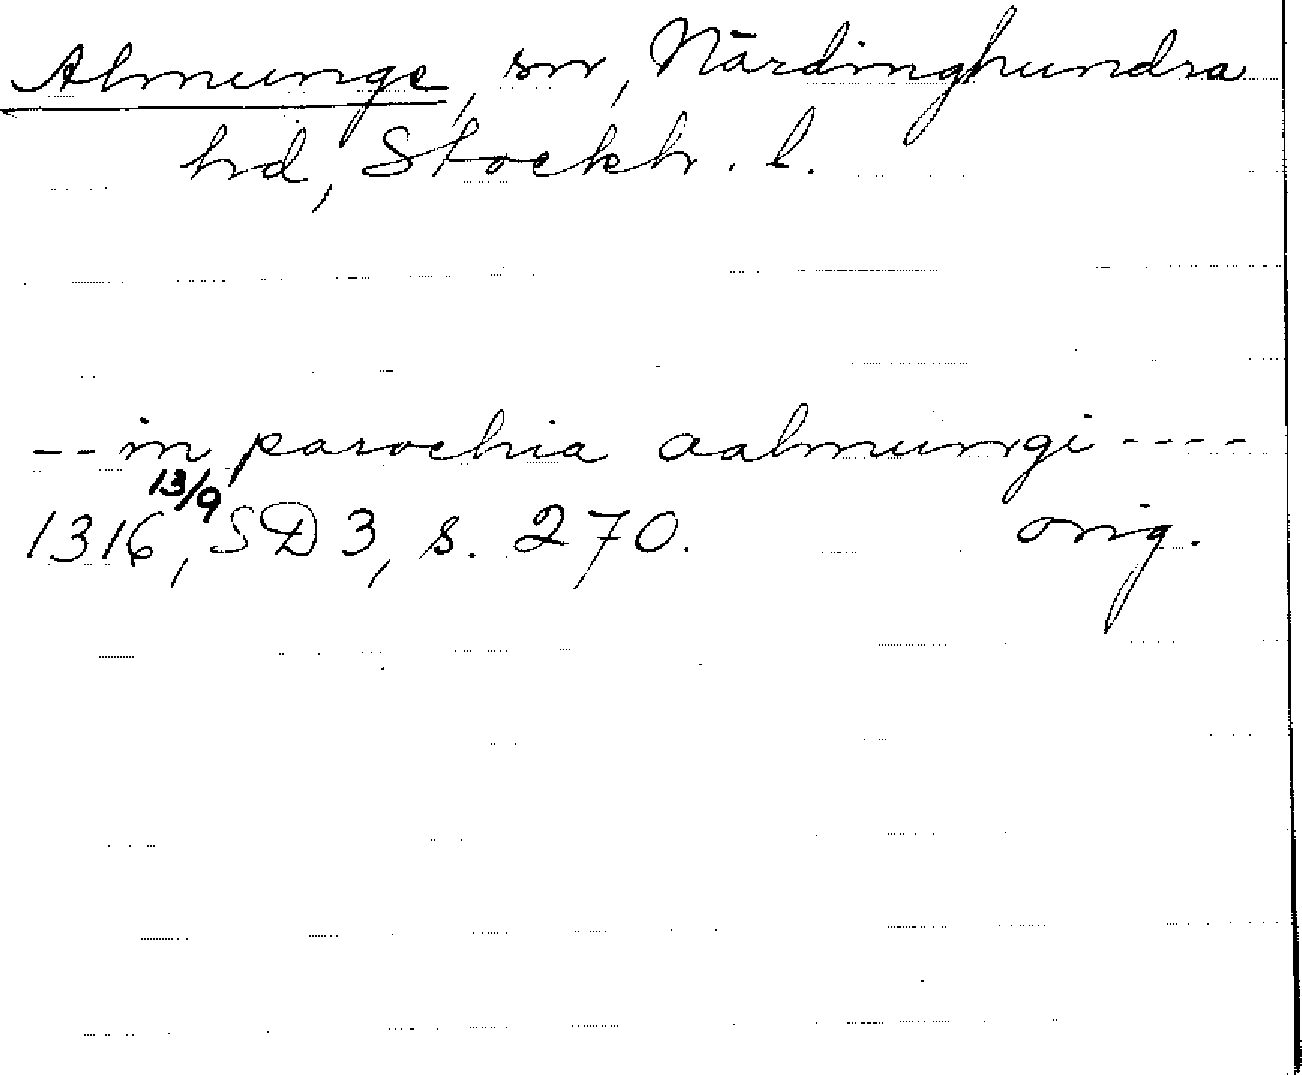 Almunge, sn, Närdinghundra
hd, Stockh. l.
-- in parochia aalmungi ----
1316 13/9, SD 3, s. 270. orig.